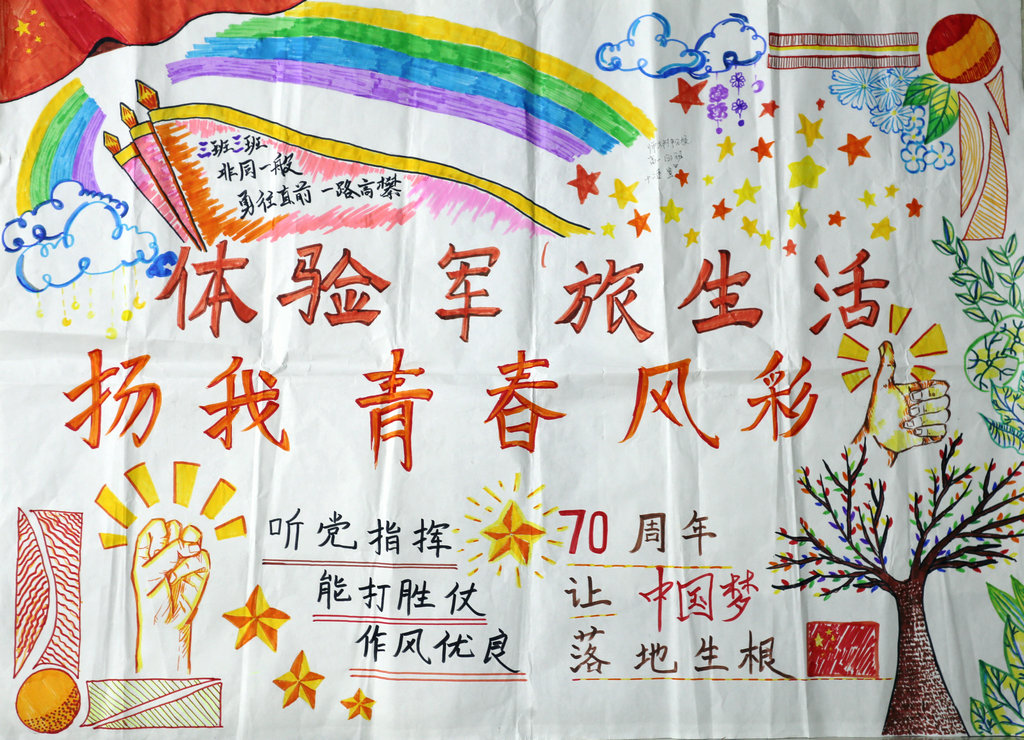 三班三班
非同一般
勇往直前 一路高攀
体验军旅生活
扬我青春风彩
听党指挥
能打胜仗
作风优良
70周年
让 中国梦
落地生根